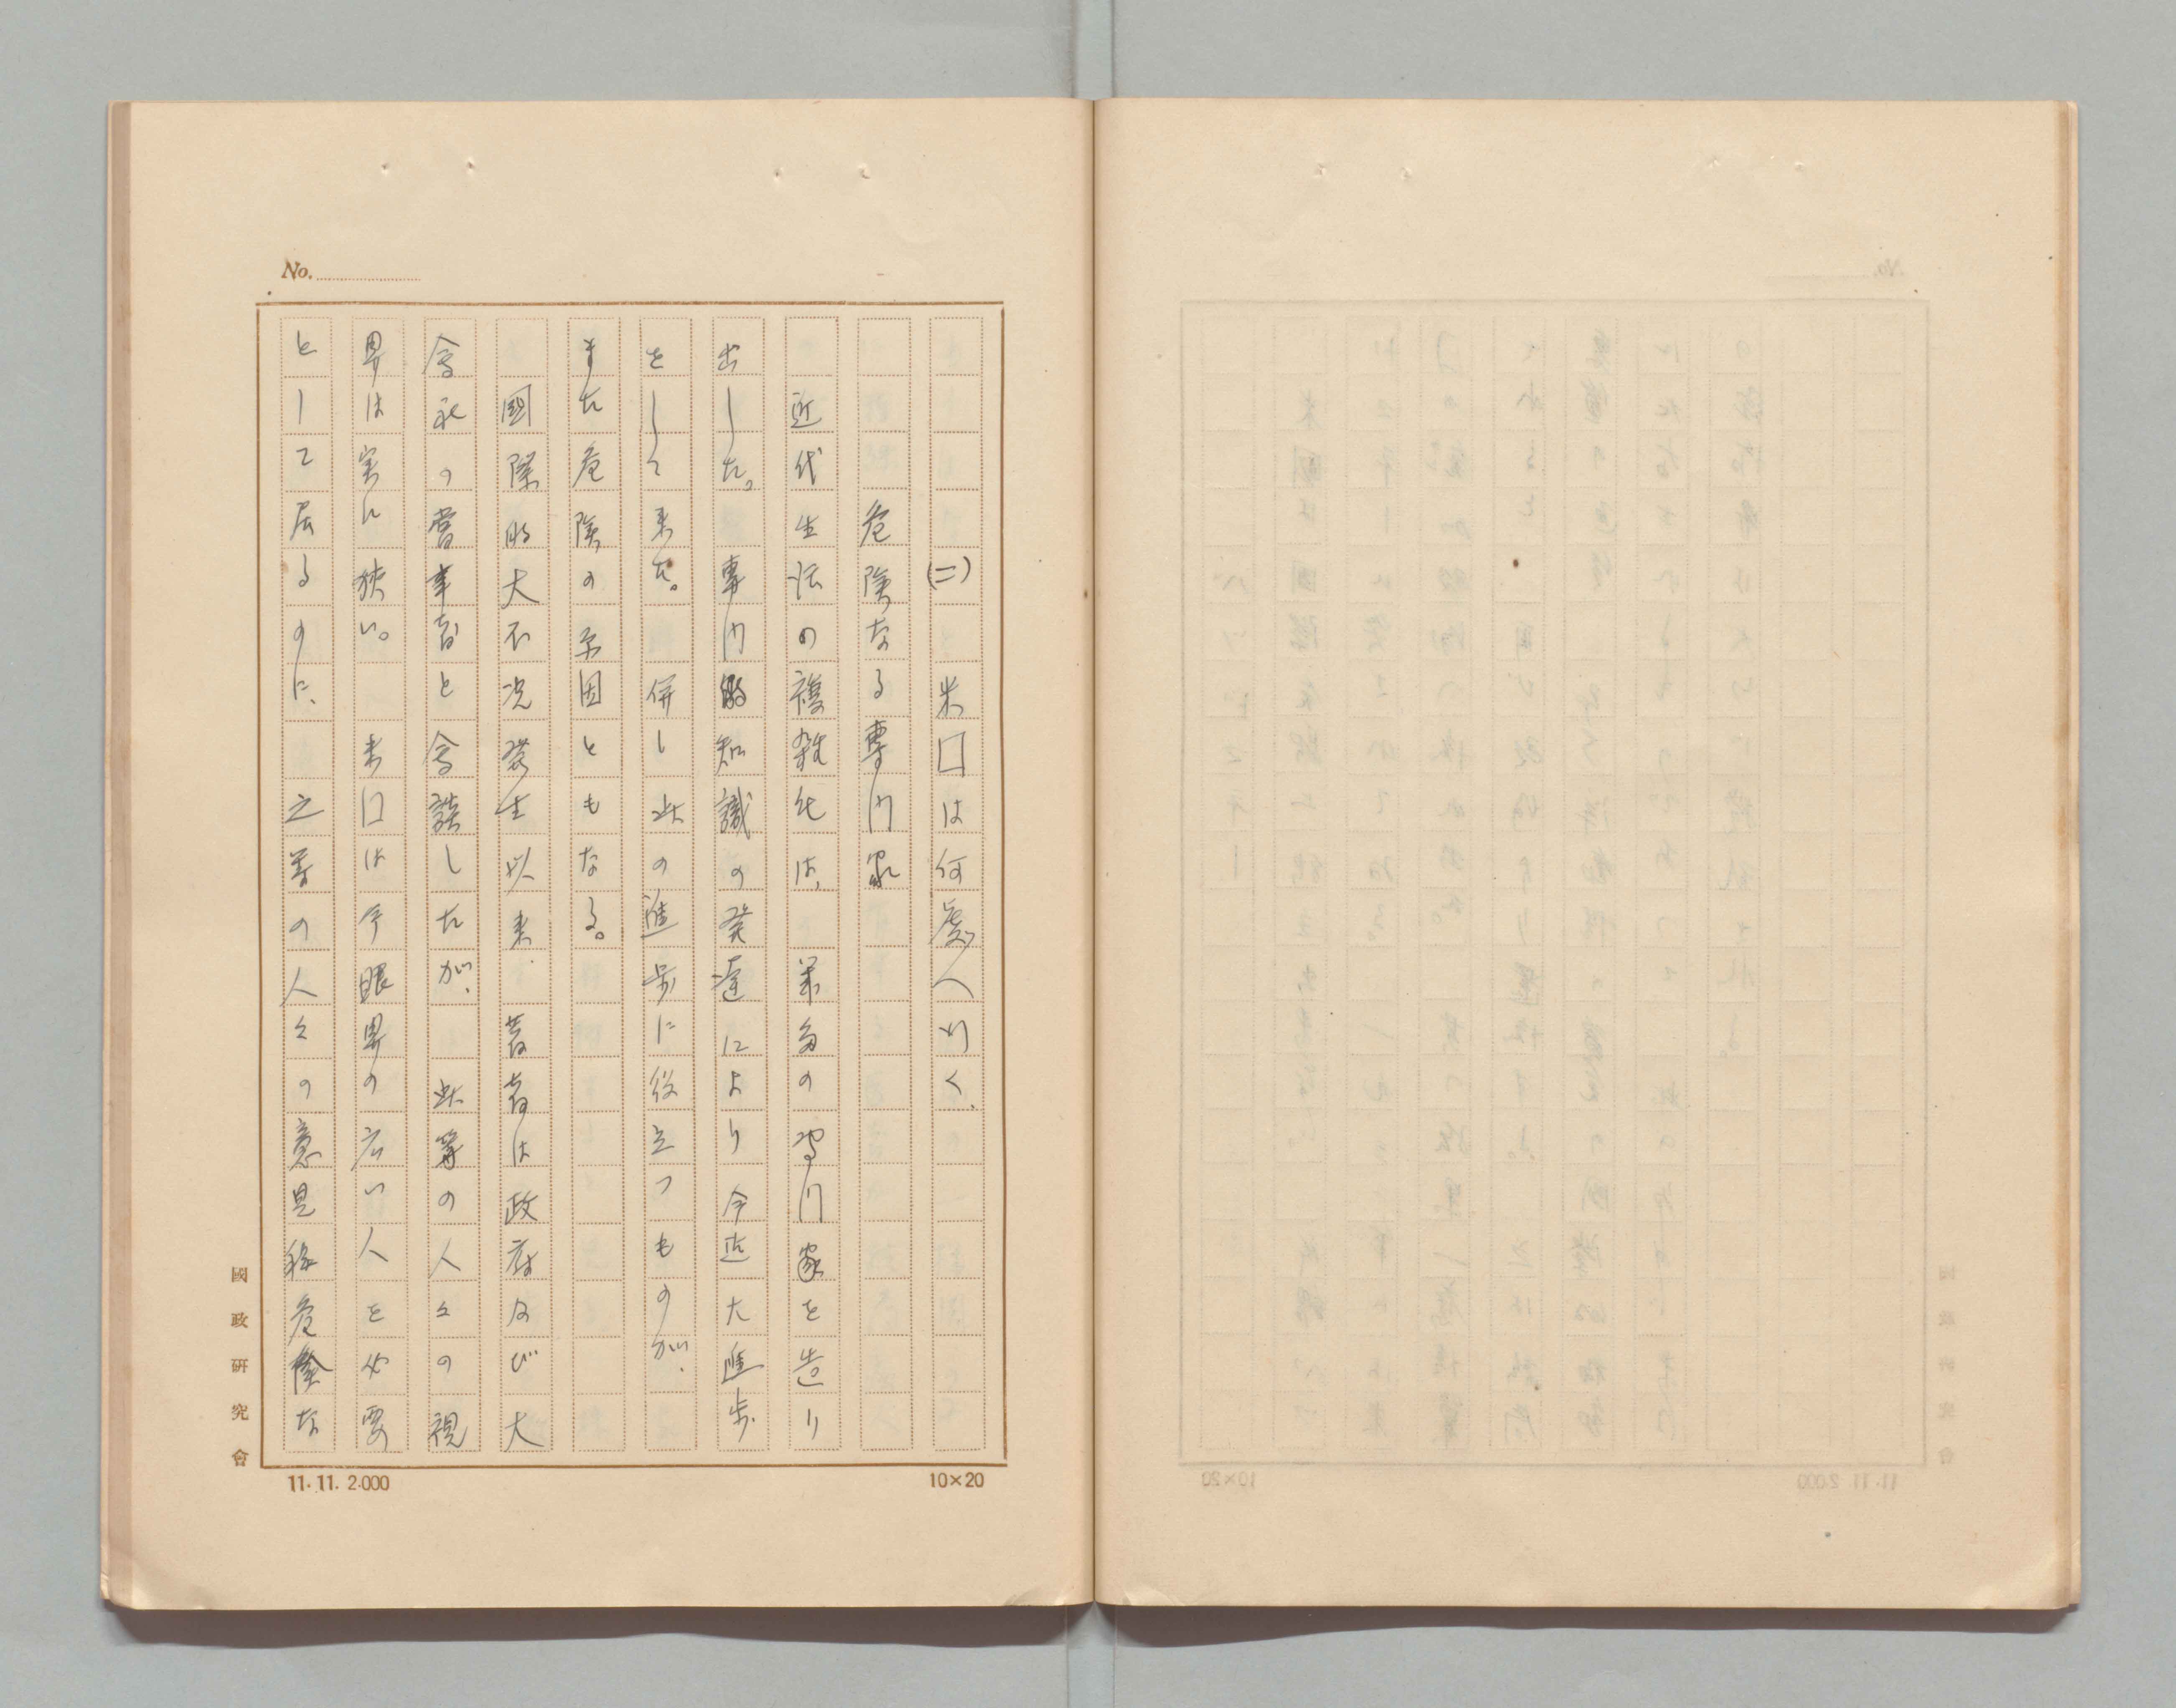 No.
(二)　米囗は何處へ行く、
危険なる專门家
近代生活の複雑化は、衆多の専门家を造り
出した。專门的知識の発達により今迄大進歩
をして来た。併し此の進歩に役立つものが、
また危険の原因ともなる。
國際的大不況発生以来、著者は政府及び大
会社の當事者と会談したが、此等の人々の視
界は実に狭い。米囗は今眼界の広い人を必要
として居るのに、之等の人々の意見程危険な
國政研究會
11. 11. 2.000
10×20